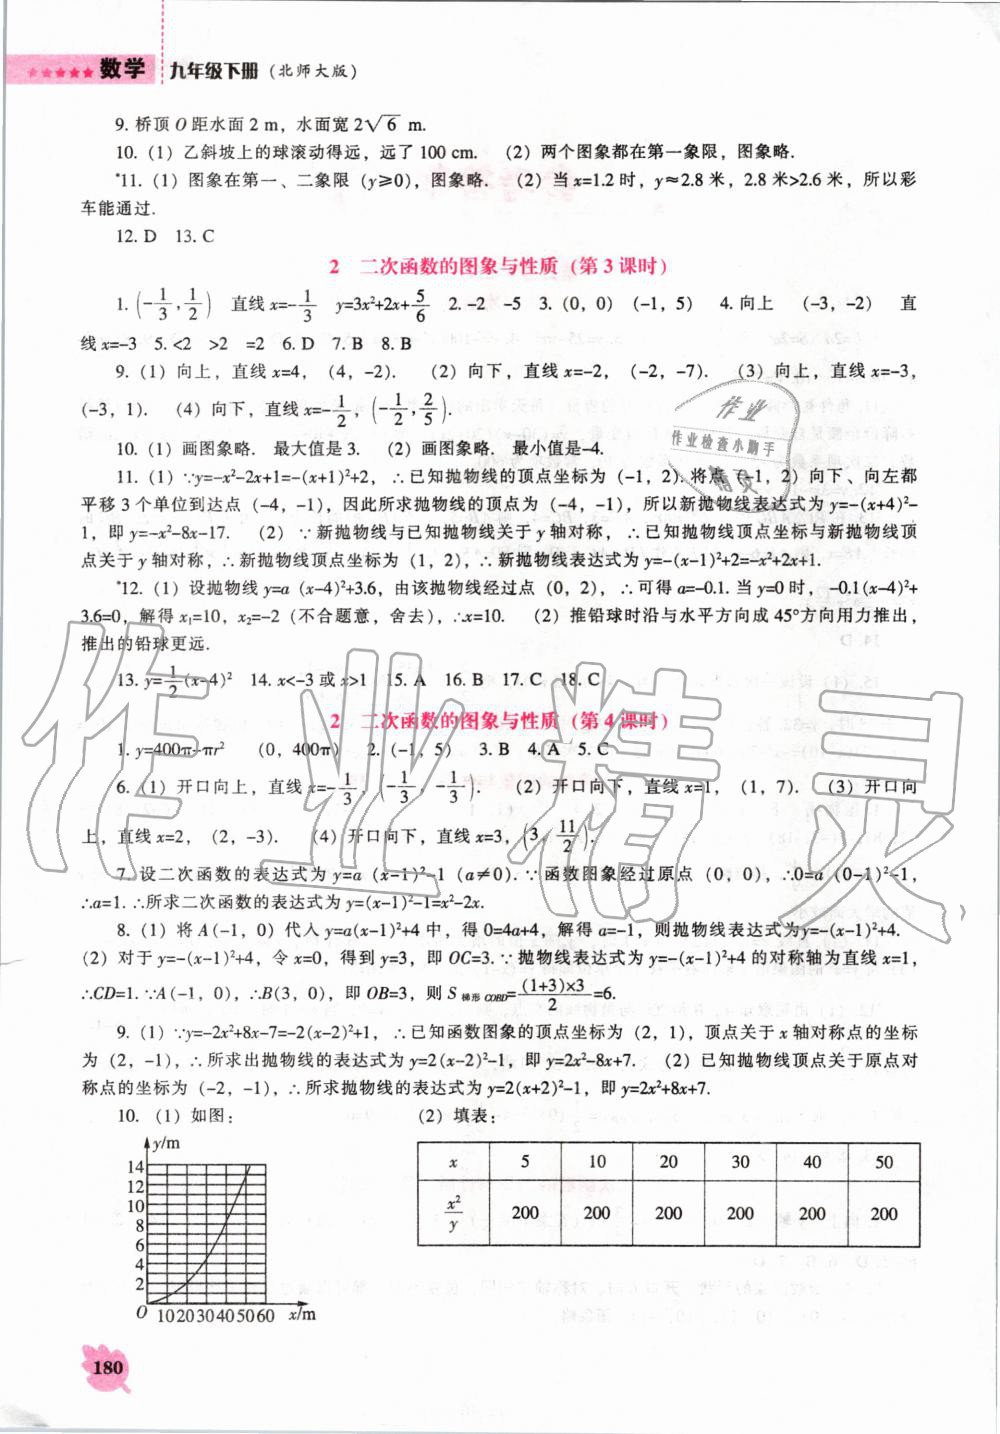 ★★★★★ 数学 九年级下册（北师大版）
9. 桥顶 O 距水面 2 m，水面宽 2√6 m.
10.（1）乙斜坡上的球滚动得远，远了 100 cm. （2）两个图象都在第一象限，图象略.
*11.（1）图象在第一、二象限（y≥0），图象略. （2）当 x=1.2 时，y≈2.8 米，2.8 米>2.6 米，所以彩
车能通过.
12. D 13. C
2 二次函数的图象与性质（第 3 课时）
1. (-1/3, 1/2) 直线 x=-1/3 y=3x²+2x+5/6 2. -2 -5 3.（0，0）（-1，5） 4. 向上 （-3，-2） 直
线 x=-3 5. <2 >2 =2 6. D 7. B 8. B
9.（1）向上，直线 x=4，（4，-2）. （2）向下，直线 x=-2，（-2，-7）. （3）向上，直线 x=-3，
（-3，1）. （4）向下，直线 x=-1/2，(-1/2, 2/5).
10.（1）画图象略. 最大值是 3. （2）画图象略. 最小值是-4.
11.（1）∵y=-x²-2x+1=-(x+1)²+2，∴已知抛物线的顶点坐标为（-1，2）. 将点（-1，2）向下、向左都
平移 3 个单位到达点（-4，-1），因此所求抛物线的顶点为（-4，-1），所以新抛物线表达式为 y=-(x+4)²-
1，即 y=-x²-8x-17. （2）∵新抛物线与已知抛物线关于 y 轴对称，∴已知抛物线顶点坐标与新抛物线顶
点关于 y 轴对称，∴新抛物线顶点坐标为（1，2），∴新抛物线表达式为 y=-(x-1)²+2=-x²+2x+1.
*12.（1）设抛物线 y=a (x-4)²+3.6，由该抛物线经过点（0，2），∴可得 a=-0.1. 当 y=0 时，-0.1(x-4)²+
3.6=0，解得 x₁=10，x₂=-2（不合题意，舍去），∴x=10. （2）推铅球时沿与水平方向成 45°方向用力推出，
推出的铅球更远.
13. y=1/2(x-4)² 14. x<-3 或 x>1 15. A 16. B 17. C 18. C
2 二次函数的图象与性质（第 4 课时）
1. y=400π-πr² （0，400π） 2.（-1，5） 3. B 4. A 5. C
6.（1）开口向上，直线 x=-1/3，(-1/3, -1/3). （2）开口向下，直线 x=1，（1，7）. （3）开口向
上，直线 x=2，（2，-3）. （4）开口向下，直线 x=3，(3, 11/2).
7. 设二次函数的表达式为 y=a (x-1)²-1（a≠0）. ∵函数图象经过原点（0，0），∴0=a (0-1)²-1，
∴a=1. ∴所求二次函数的表达式为 y=(x-1)²-1=x²-2x.
8.（1）将 A（-1，0）代人 y=a(x-1)²+4 中，得 0=4a+4，解得 a=-1，则抛物线表达式为 y=-(x-1)²+4.
（2）对于 y=-(x-1)²+4，令 x=0，得到 y=3，即 OC=3. ∵抛物线表达式为 y=-(x-1)²+4 的对称轴为直线 x=1，
∴CD=1. ∵A（-1，0），∴B（3，0），即 OB=3，则 S梯形COBD=(1+3)×3/2=6.
9.（1）∵y=-2x²+8x-7=-2(x-2)²+1，∴已知函数图象的顶点坐标为（2，1），顶点关于 x 轴对称点的坐标
为（2，-1），∴所求出抛物线的表达式为 y=2(x-2)²-1，即 y=2x²-8x+7. （2）已知抛物线顶点关于原点对
称点的坐标为（-2，-1），∴所求抛物线的表达式为 y=2(x+2)²-1，即 y=2x²+8x+7.
10.（1）如图： （2）填表：
y/m
14
12
10
8
6
4
2
O 10 20 30 40 50 60 x/m
x 5 10 20 30 40 50
x²/y 200 200 200 200 200 200
180
作业
作业检查小助手
精灵
作业精灵